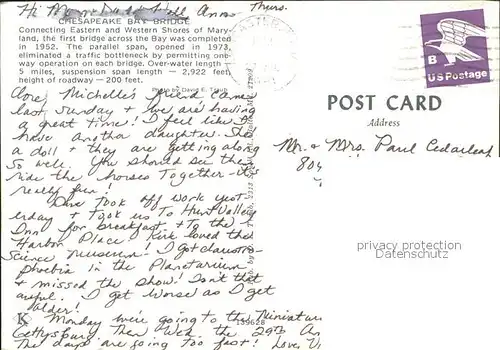 Hi Mom & Dad & all
Thurs.
CHESAPEAKE BAY BRIDGE
Connecting Eastern and Western Shores of Mary-
land, the first bridge across the Bay was completed
in 1952. The parallel span, opened in 1973,
eliminated a traffic bottleneck by permitting one-
way operation on each bridge. Over-water length —
5 miles, suspension span length — 2,922 feet
height of roadway — 200 feet.
Photo by David E. Traub
Michelle's friend came
last Sunday & we are having
a great time! I feel like I
have another daughter. She's
a doll & they are getting along
so well. You should see them
ride the horses together - it's
really fun!
Dave took off work yest-
erday & took us to Hunt Valley
Inn for breakfast & to the
Harbor Place. Kirk loved the
Science Museum! I got claustro-
phobia in the Planetarium
& missed the show! Isn't that
awful. I get worse as I get
older!
Monday we're going to the Miniature
Gettysburg then Wed. the 29th
The days are going too fast! Love
K
139628
B
US Postage
POST CARD
Address
Mr. & Mrs. Paul Cedarleaf
804
privacy protection
Datenschutz